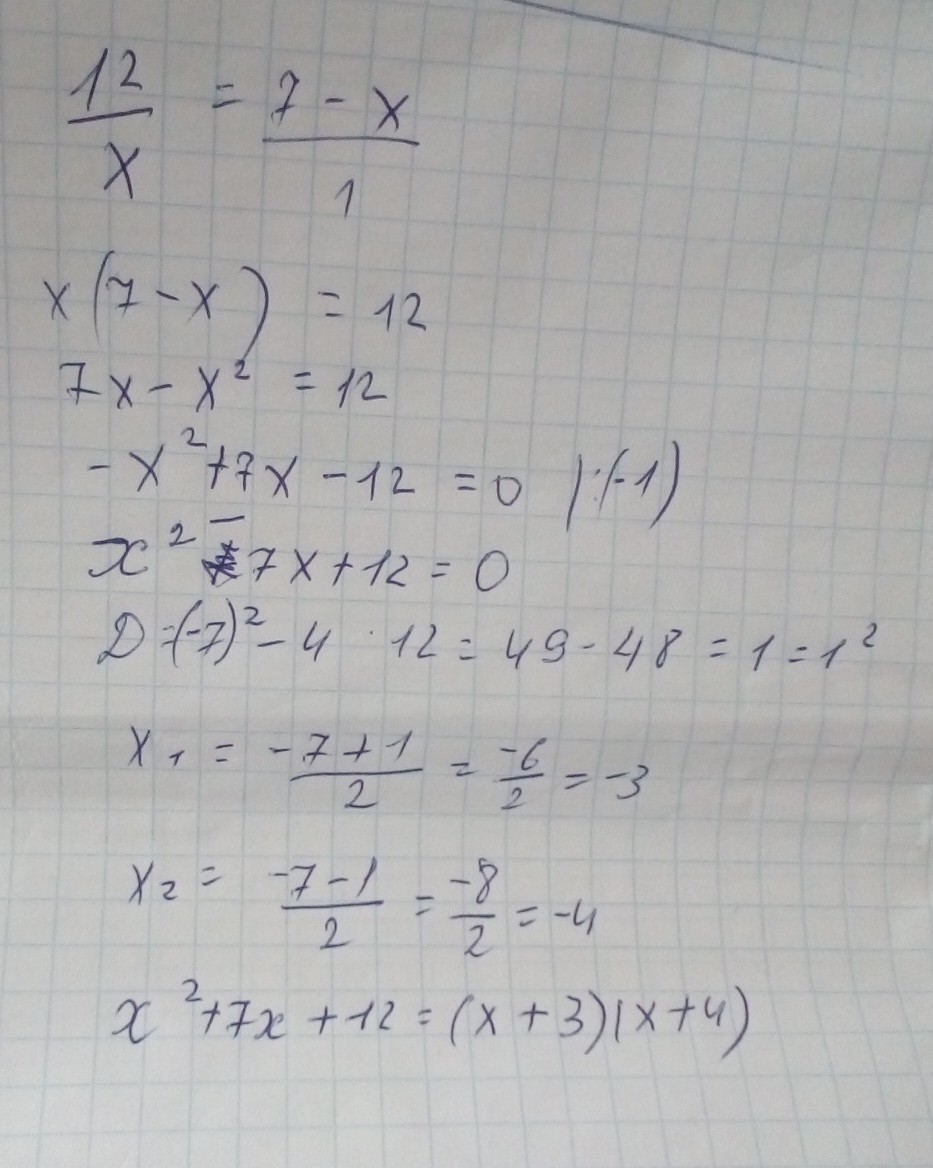 12/x = 7 - x/1
x(7 - x) = 12
7x - x² = 12
- x² + 7x - 12 = 0 |:(-1)
x² - 7x + 12 = 0
D = (-7)² - 4 · 12 = 49 - 48 = 1 = 1²
x₁ = -7 + 1/2 = -6/2 = -3
x₂ = -7 - 1/2 = -8/2 = -4
x² + 7x + 12 = (x + 3)(x + 4)